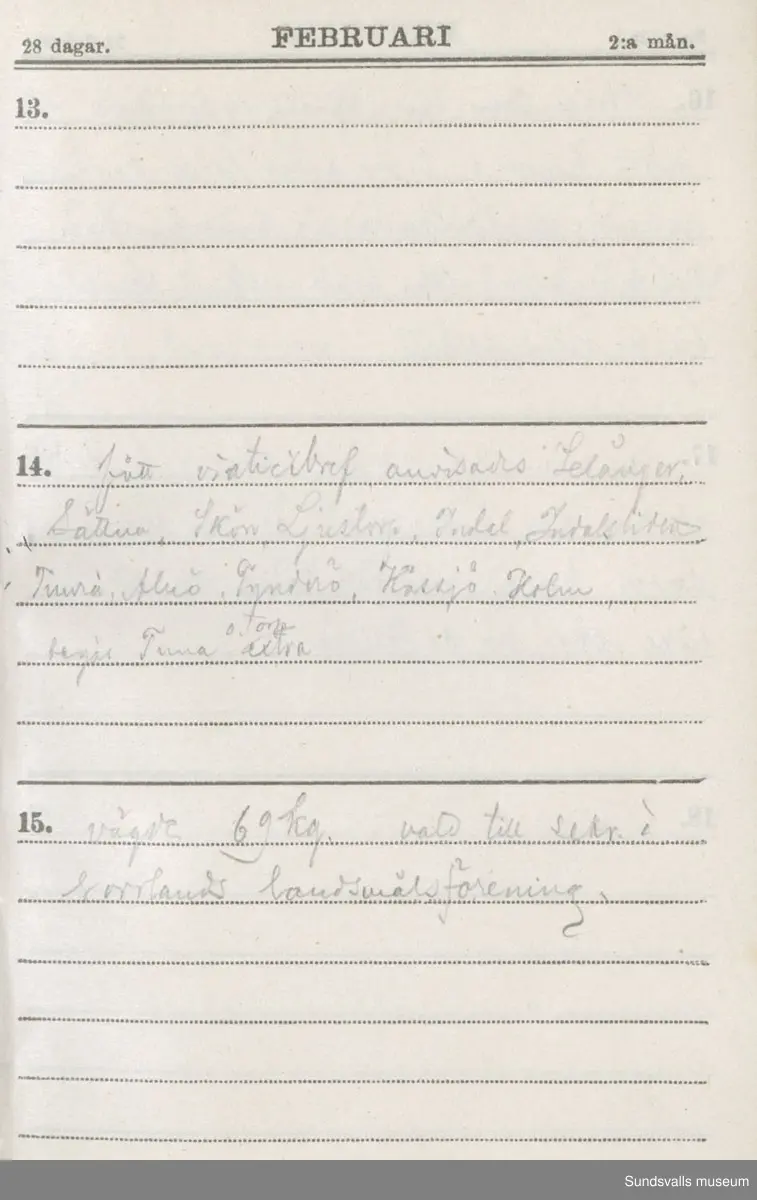 28 dagar. FEBRUARI 2:a mån.
13.
14. fått viaticibref, anvisades Selånger,
Sättna, Skön, Ljustorp, Indal, Indalsliden
Timrå, Alnö, Tynderö, Hässjö, Holm,
Tuna o. torp extra
15. vägde 69 kg. vald till sekr. i
Norrlands landsmålsförening,
Sundsvalls museum